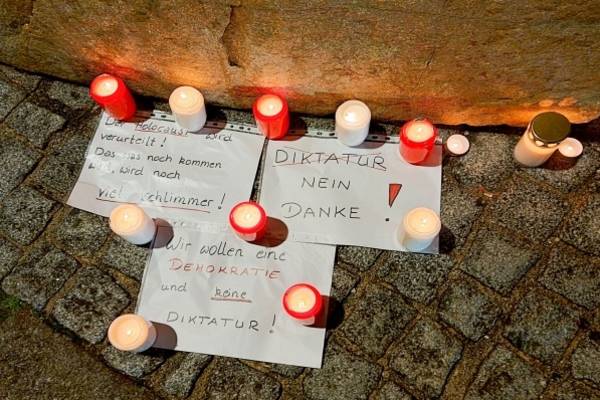 Der Holocaust wird
verurteilt!
Das was noch kommen
wird wird noch
viel schlimmer!
DIKTATUR
NEIN
DANKE!
Wir wollen eine
DEMOKRATIE
und keine
DIKTATUR!